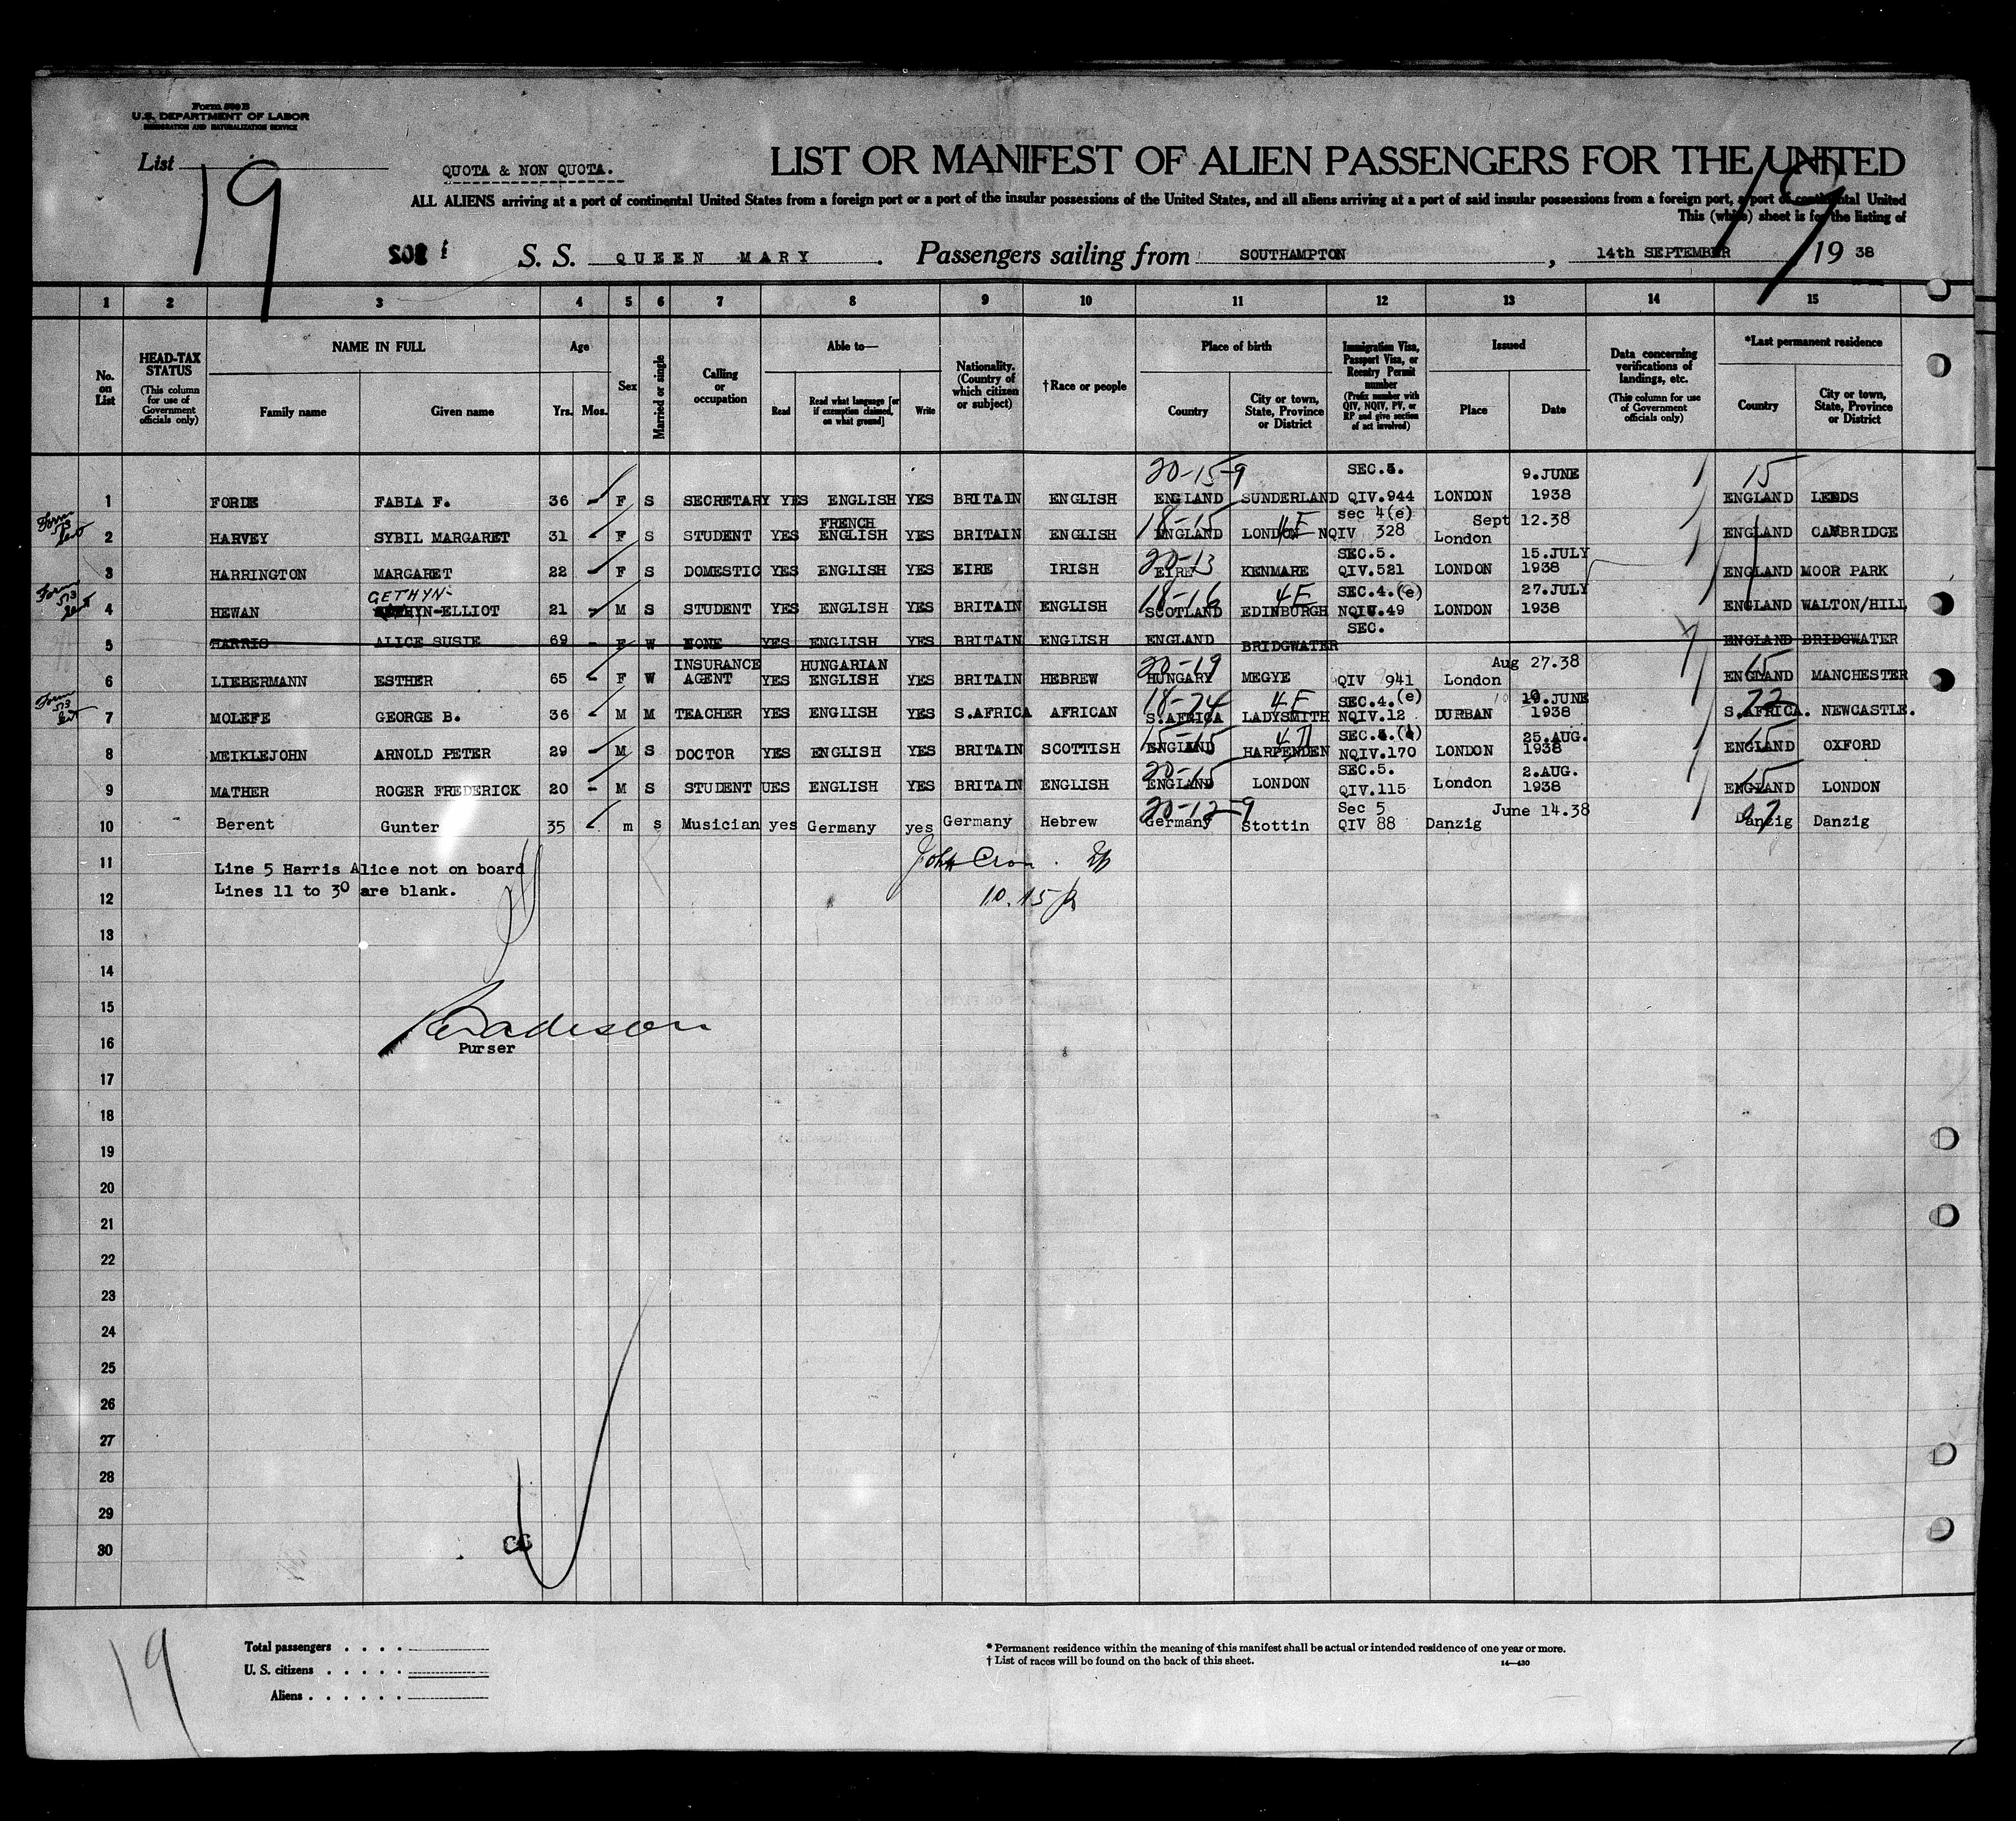 Form 500 B
U.S. DEPARTMENT OF LABOR
IMMIGRATION AND NATURALIZATION SERVICE
List 19
QUOTA & NON QUOTA.
LIST OR MANIFEST OF ALIEN PASSENGERS FOR THE UNITED
ALL ALIENS arriving at a port of continental United States from a foreign port or a port of the insular possessions of the United States, and all aliens arriving at a port of said insular possessions from a foreign port, a port of continental United
This (white) sheet is for the listing of
S. S. QUEEN MARY . Passengers sailing from SOUTHAMPTON , 14th SEPTEMBER 19 38
1 2 3 4 5 6 7 8 9 10 11 12 13 14 15
No. on List
HEAD-TAX STATUS (This column for use of Government officials only)
NAME IN FULL Family name Given name
Age Yrs. Mos.
Sex
Married or single
Calling or occupation
Able to— Read Read what language [or if exemption claimed, on what ground] Write
Nationality. (Country of which citizen or subject)
†Race or people
Place of birth Country City or town, State, Province or District
Immigration Visa, Passport Visa, or Reentry Permit number (Prefix number with QIV, NQIV, PV, or RP and give section of act involved)
Issued Place Date
Data concerning verifications of landings, etc. (This column for use of Government officials only)
*Last permanent residence Country City or town, State, Province or District
20-15-9 SEC.5. 9.JUNE 15
1 FORDE FABIA F. 36 F S SECRETARY YES ENGLISH YES BRITAIN ENGLISH ENGLAND SUNDERLAND QIV.944 LONDON 1938 ENGLAND LEEDS
Form 573 sent FRENCH 18-15 4E sec 4(e) Sept 12.38
2 HARVEY SYBIL MARGARET 31 F S STUDENT YES ENGLISH YES BRITAIN ENGLISH ENGLAND LONDON NQIV 328 London ENGLAND CAMBRIDGE
20-13 SEC.5. 15.JULY
3 HARRINGTON MARGARET 22 F S DOMESTIC YES ENGLISH YES EIRE IRISH EIRE KENMARE QIV.521 LONDON 1938 ENGLAND MOOR PARK
Form 573 sent GETHYN- 18-16 4E SEC.4.(e) 27.JULY
4 HEWAN GETHYN-ELLIOT 21 M S STUDENT YES ENGLISH YES BRITAIN ENGLISH SCOTLAND EDINBURGH NQIV.49 LONDON 1938 ENGLAND WALTON/HILL
SEC.
5 HARRIS ALICE SUSIE 69 F W NONE YES ENGLISH YES BRITAIN ENGLISH ENGLAND BRIDGWATER ENGLAND BRIDGWATER
INSURANCE HUNGARIAN 20-19 Aug 27.38 15
6 LIEBERMANN ESTHER 65 F W AGENT YES ENGLISH YES BRITAIN HEBREW HUNGARY MEGYE QIV 941 London ENGLAND MANCHESTER
Form 573 sent 18-24 4E SEC.4.(e) 10.JUNE 22
7 MOLEFE GEORGE B. 36 M M TEACHER YES ENGLISH YES S.AFRICA AFRICAN S.AFRICA LADYSMITH NQIV.12 DURBAN 1938 S.AFRICA. NEWCASTLE.
15-15 4D 25.AUG. 15
8 MEIKLEJOHN ARNOLD PETER 29 M S DOCTOR YES ENGLISH YES BRITAIN SCOTTISH ENGLAND HARPENDEN NQIV.170 LONDON 1938 ENGLAND OXFORD
20-15 SEC.5. 2.AUG. 15
9 MATHER ROGER FREDERICK 20 M S STUDENT UES ENGLISH YES BRITAIN ENGLISH ENGLAND LONDON QIV.115 London 1938 ENGLAND LONDON
20-12-9 Sec 5 June 14.38
10 Berent Gunter 35 m s Musician yes Germany yes Germany Hebrew Germany Stottin QIV 88 Danzig Danzig Danzig
11 Line 5 Harris Alice not on board
Lines 11 to 30 are blank.
12 10.15
13
14
15
16 Purser
17
18
19
20
21
22
23
24
25
26
27
28
29
30
19
Total passengers . . . .
U. S. citizens . . . . .
Aliens . . . . . .
* Permanent residence within the meaning of this manifest shall be actual or intended residence of one year or more.
† List of races will be found on the back of this sheet.
14—430